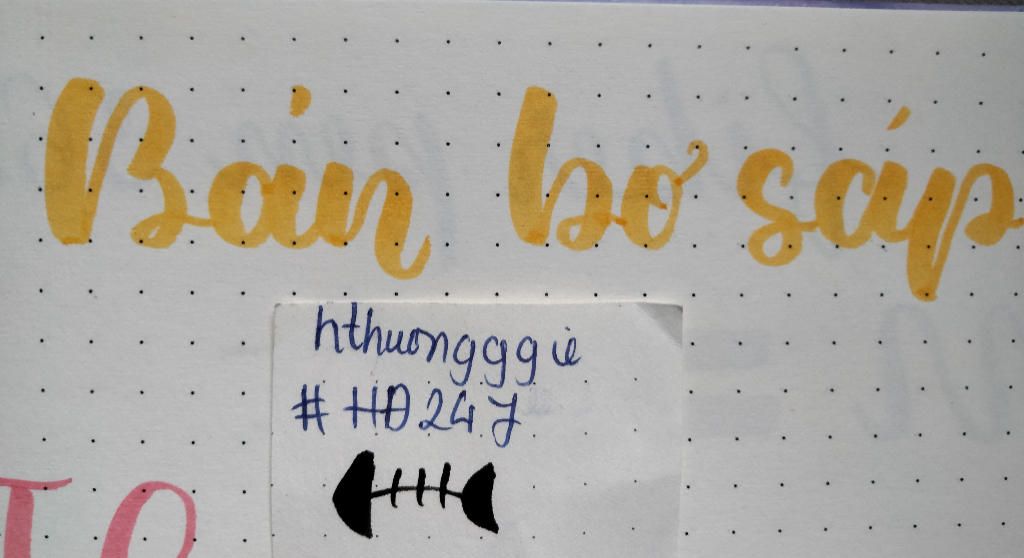 Bán bơ sáp
hthuongggie
# HĐ247